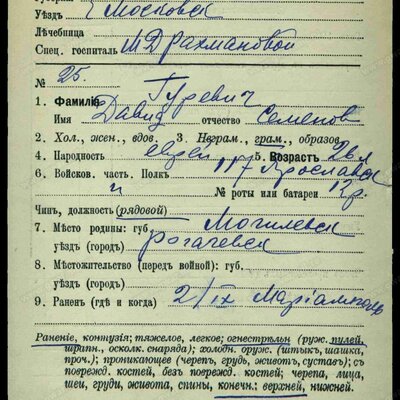 Уѣздъ г. Москова
Лѣчебница
Спец. госпиталь М. Д. Рахмановой
№ 25.
1. Фамилія Гуревич
Имя Давид отчество Семенов
2. Хол., жен., вдов. 3. Неграм., грам., образов.
4. Народность еврей 5. Возрастъ 22 л
6. Войсков. часть. Полк 117 Ярославск
п № роты или батареи 12 р.
Чинъ, должность (рядовой)
7. Мѣсто родины: губ. Могилевск
уѣздъ (городъ) Рогачевск
8. Мѣстожительство (передъ войной): губ.
уѣздъ (городъ)
9. Раненъ (гдѣ и когда) 2/IX Маріамполь
Раненіе, контузія; тяжелое, легкое; огнестрѣльн (руж. пулей,
шрапн., осколк. снаряда); холодн. оруж. (штыкъ, шашка,
проч.); проникающее (черепъ, грудь, животъ, суставъ); съ
поврежд. костей, безъ поврежд. костей; черепа, лица,
шеи, груди, живота, спины, конечн.: верхней, нижней.